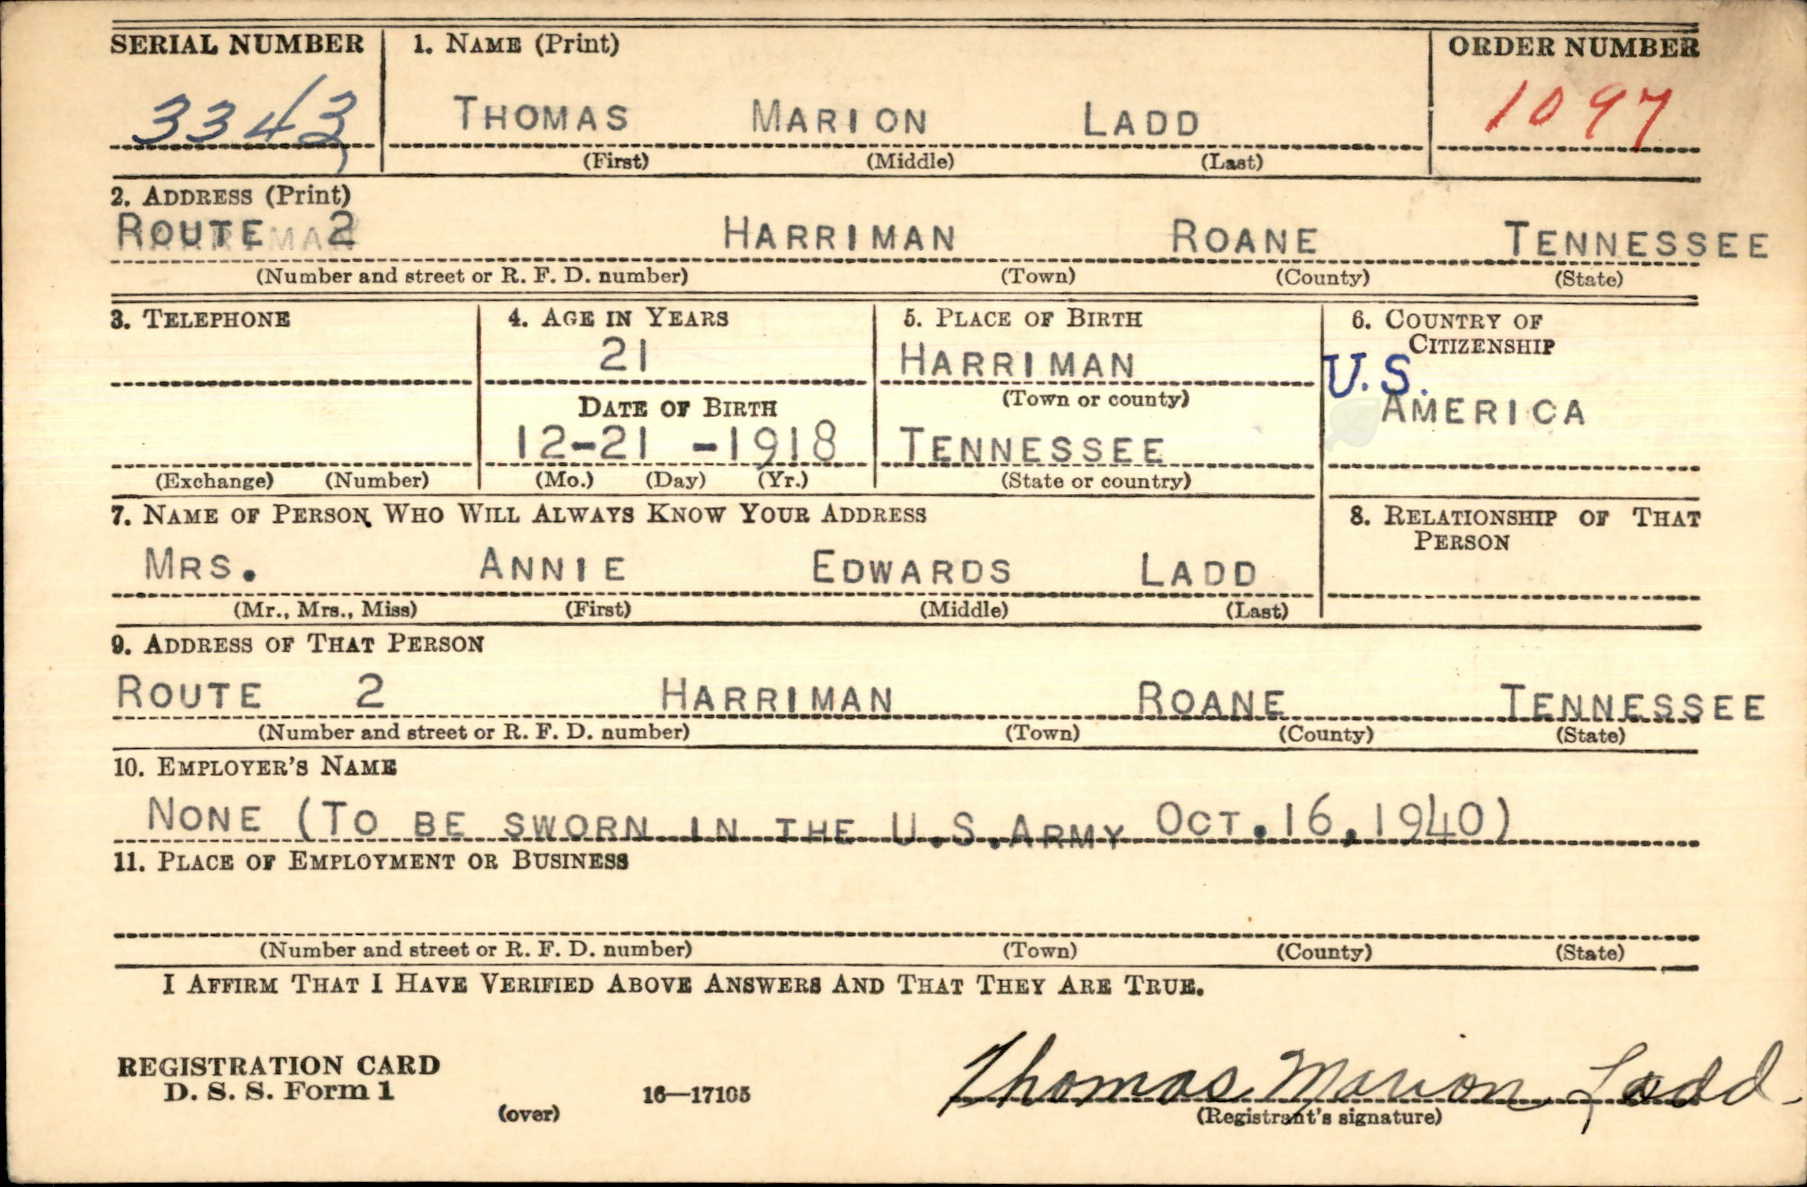 SERIAL NUMBER 1. NAME (Print) ORDER NUMBER
3343 THOMAS MARION LADD 1097
(First) (Middle) (Last)
2. ADDRESS (Print)
ROUTE 2 HARRIMAN ROANE TENNESSEE
(Number and street or R. F. D. number) (Town) (County) (State)
3. TELEPHONE 4. AGE IN YEARS 5. PLACE OF BIRTH 6. COUNTRY OF
CITIZENSHIP
21 HARRIMAN U.S.
DATE OF BIRTH (Town or county) AMERICA
12-21-1918 TENNESSEE
(Exchange) (Number) (Mo.) (Day) (Yr.) (State or country)
7. NAME OF PERSON WHO WILL ALWAYS KNOW YOUR ADDRESS 8. RELATIONSHIP OF THAT
PERSON
MRS. ANNIE EDWARDS LADD
(Mr., Mrs., Miss) (First) (Middle) (Last)
9. ADDRESS OF THAT PERSON
ROUTE 2 HARRIMAN ROANE TENNESSEE
(Number and street or R. F. D. number) (Town) (County) (State)
10. EMPLOYER'S NAME
NONE (TO BE SWORN IN THE U.S.ARMY OCT.16,1940)
11. PLACE OF EMPLOYMENT OR BUSINESS
(Number and street or R. F. D. number) (Town) (County) (State)
I AFFIRM THAT I HAVE VERIFIED ABOVE ANSWERS AND THAT THEY ARE TRUE.
REGISTRATION CARD
D. S. S. Form 1 (over) 16—17105 Thomas Marion Ladd.
(Registrant's signature)